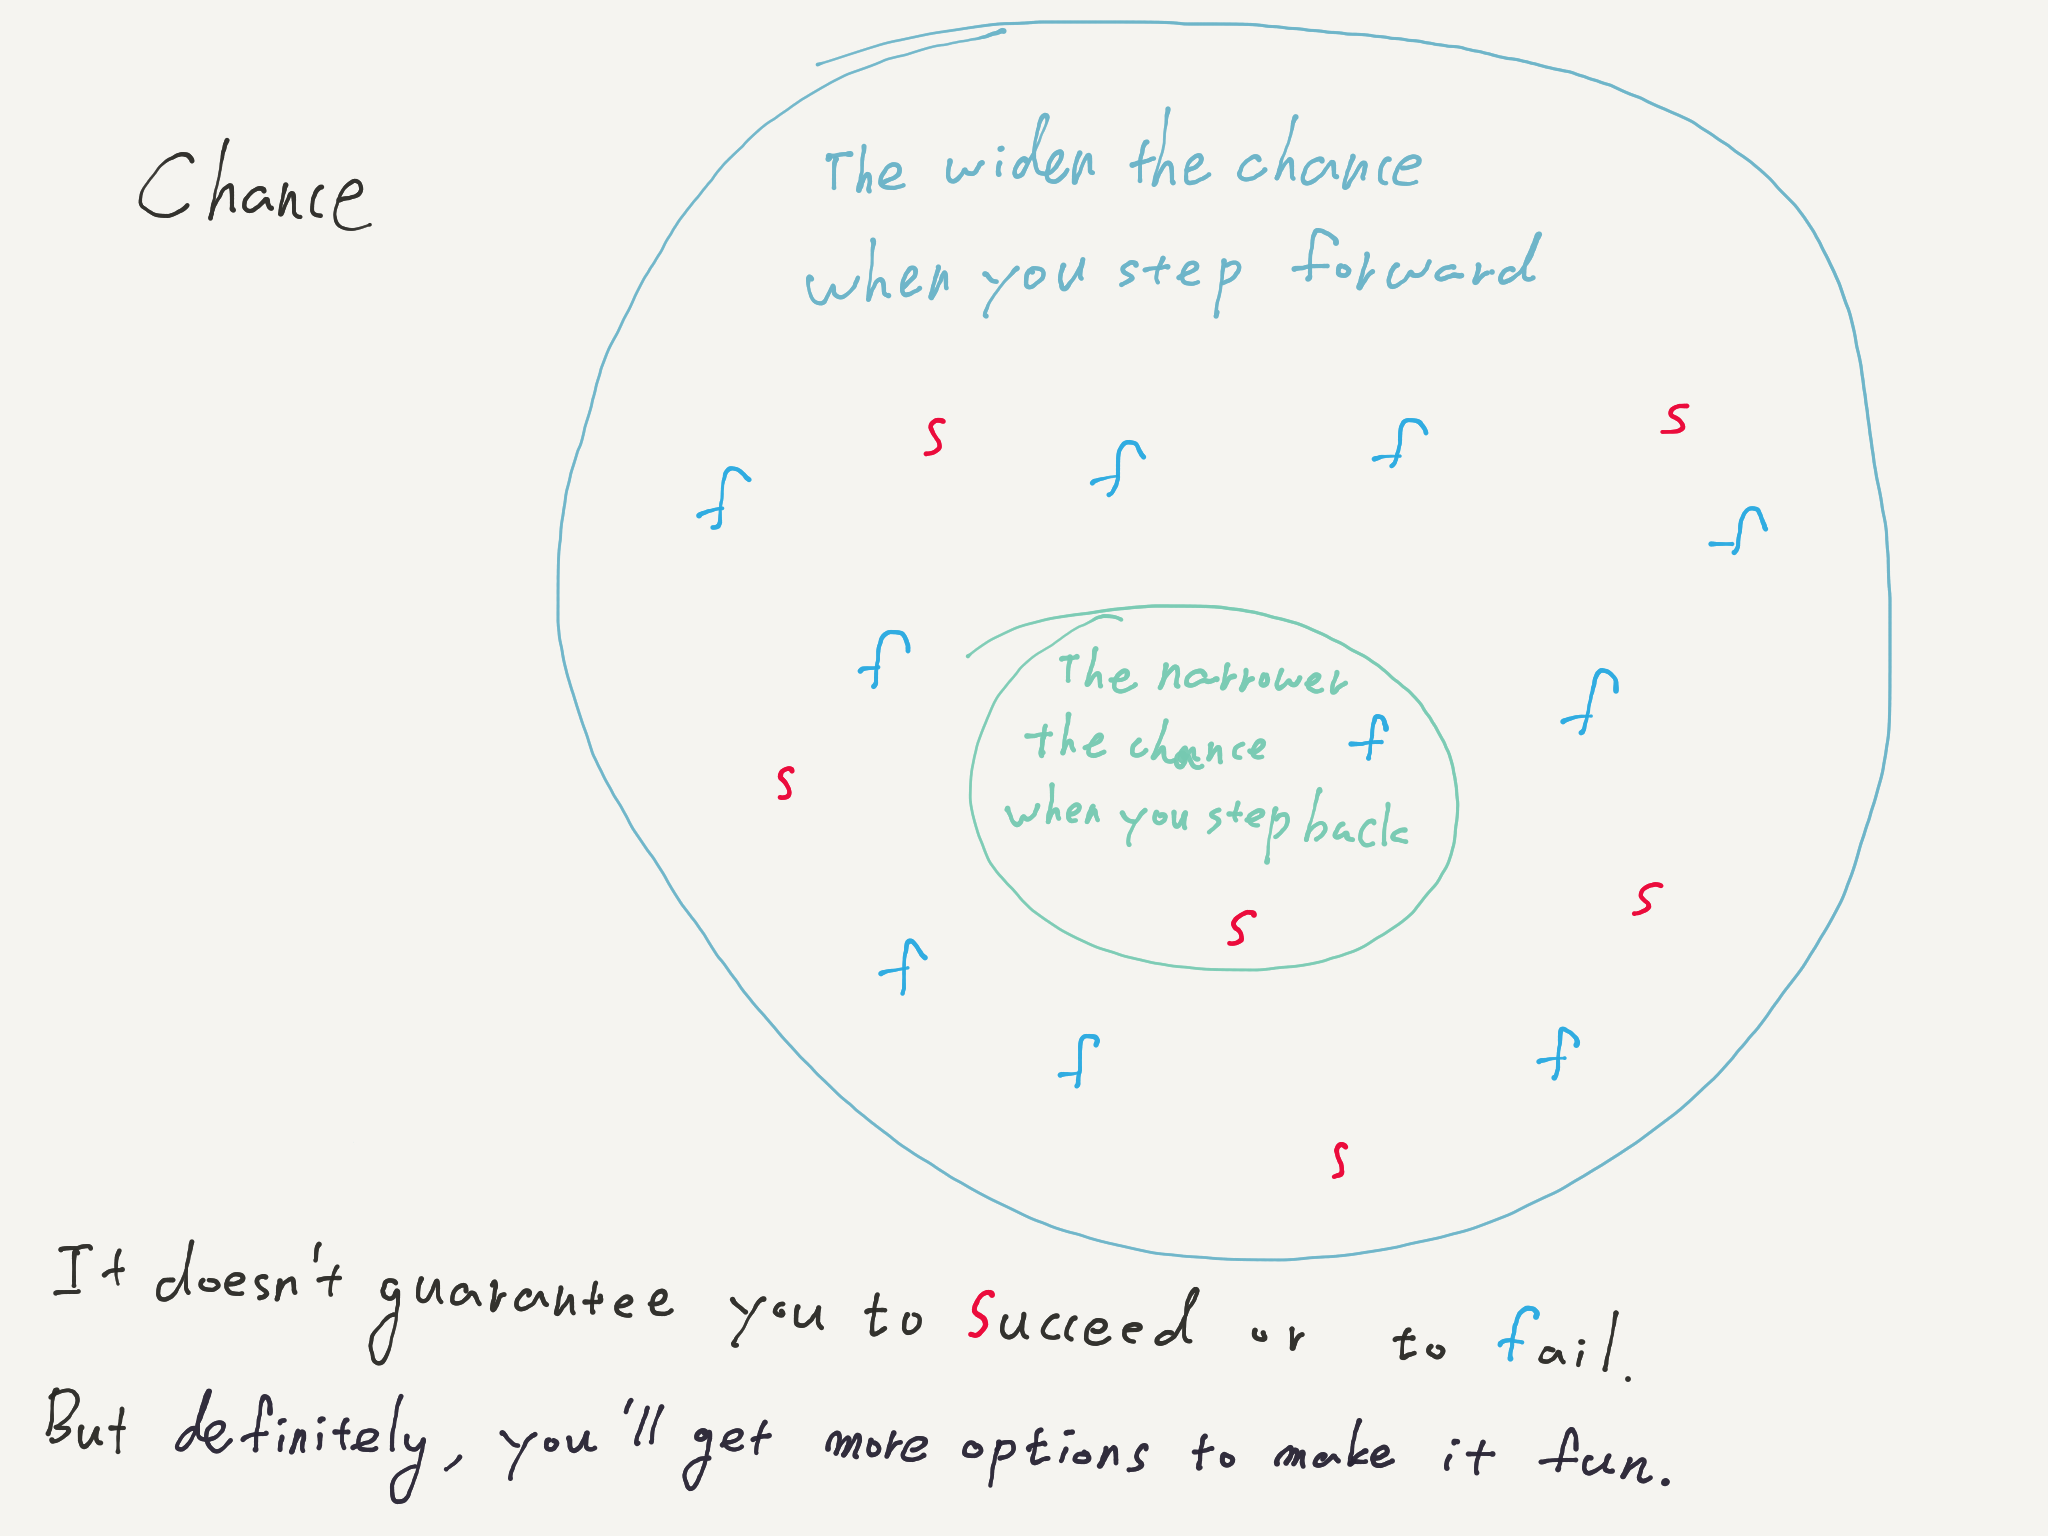 Chance
The widen the chance
when you step forward
s
s
f
f
f
f
f
The narrower
f
the chance
f
s
when you step back
s
s
f
f
f
s
It doesn't guarantee you to succeed or to fail.
But definitely, you'll get more options to make it fun.